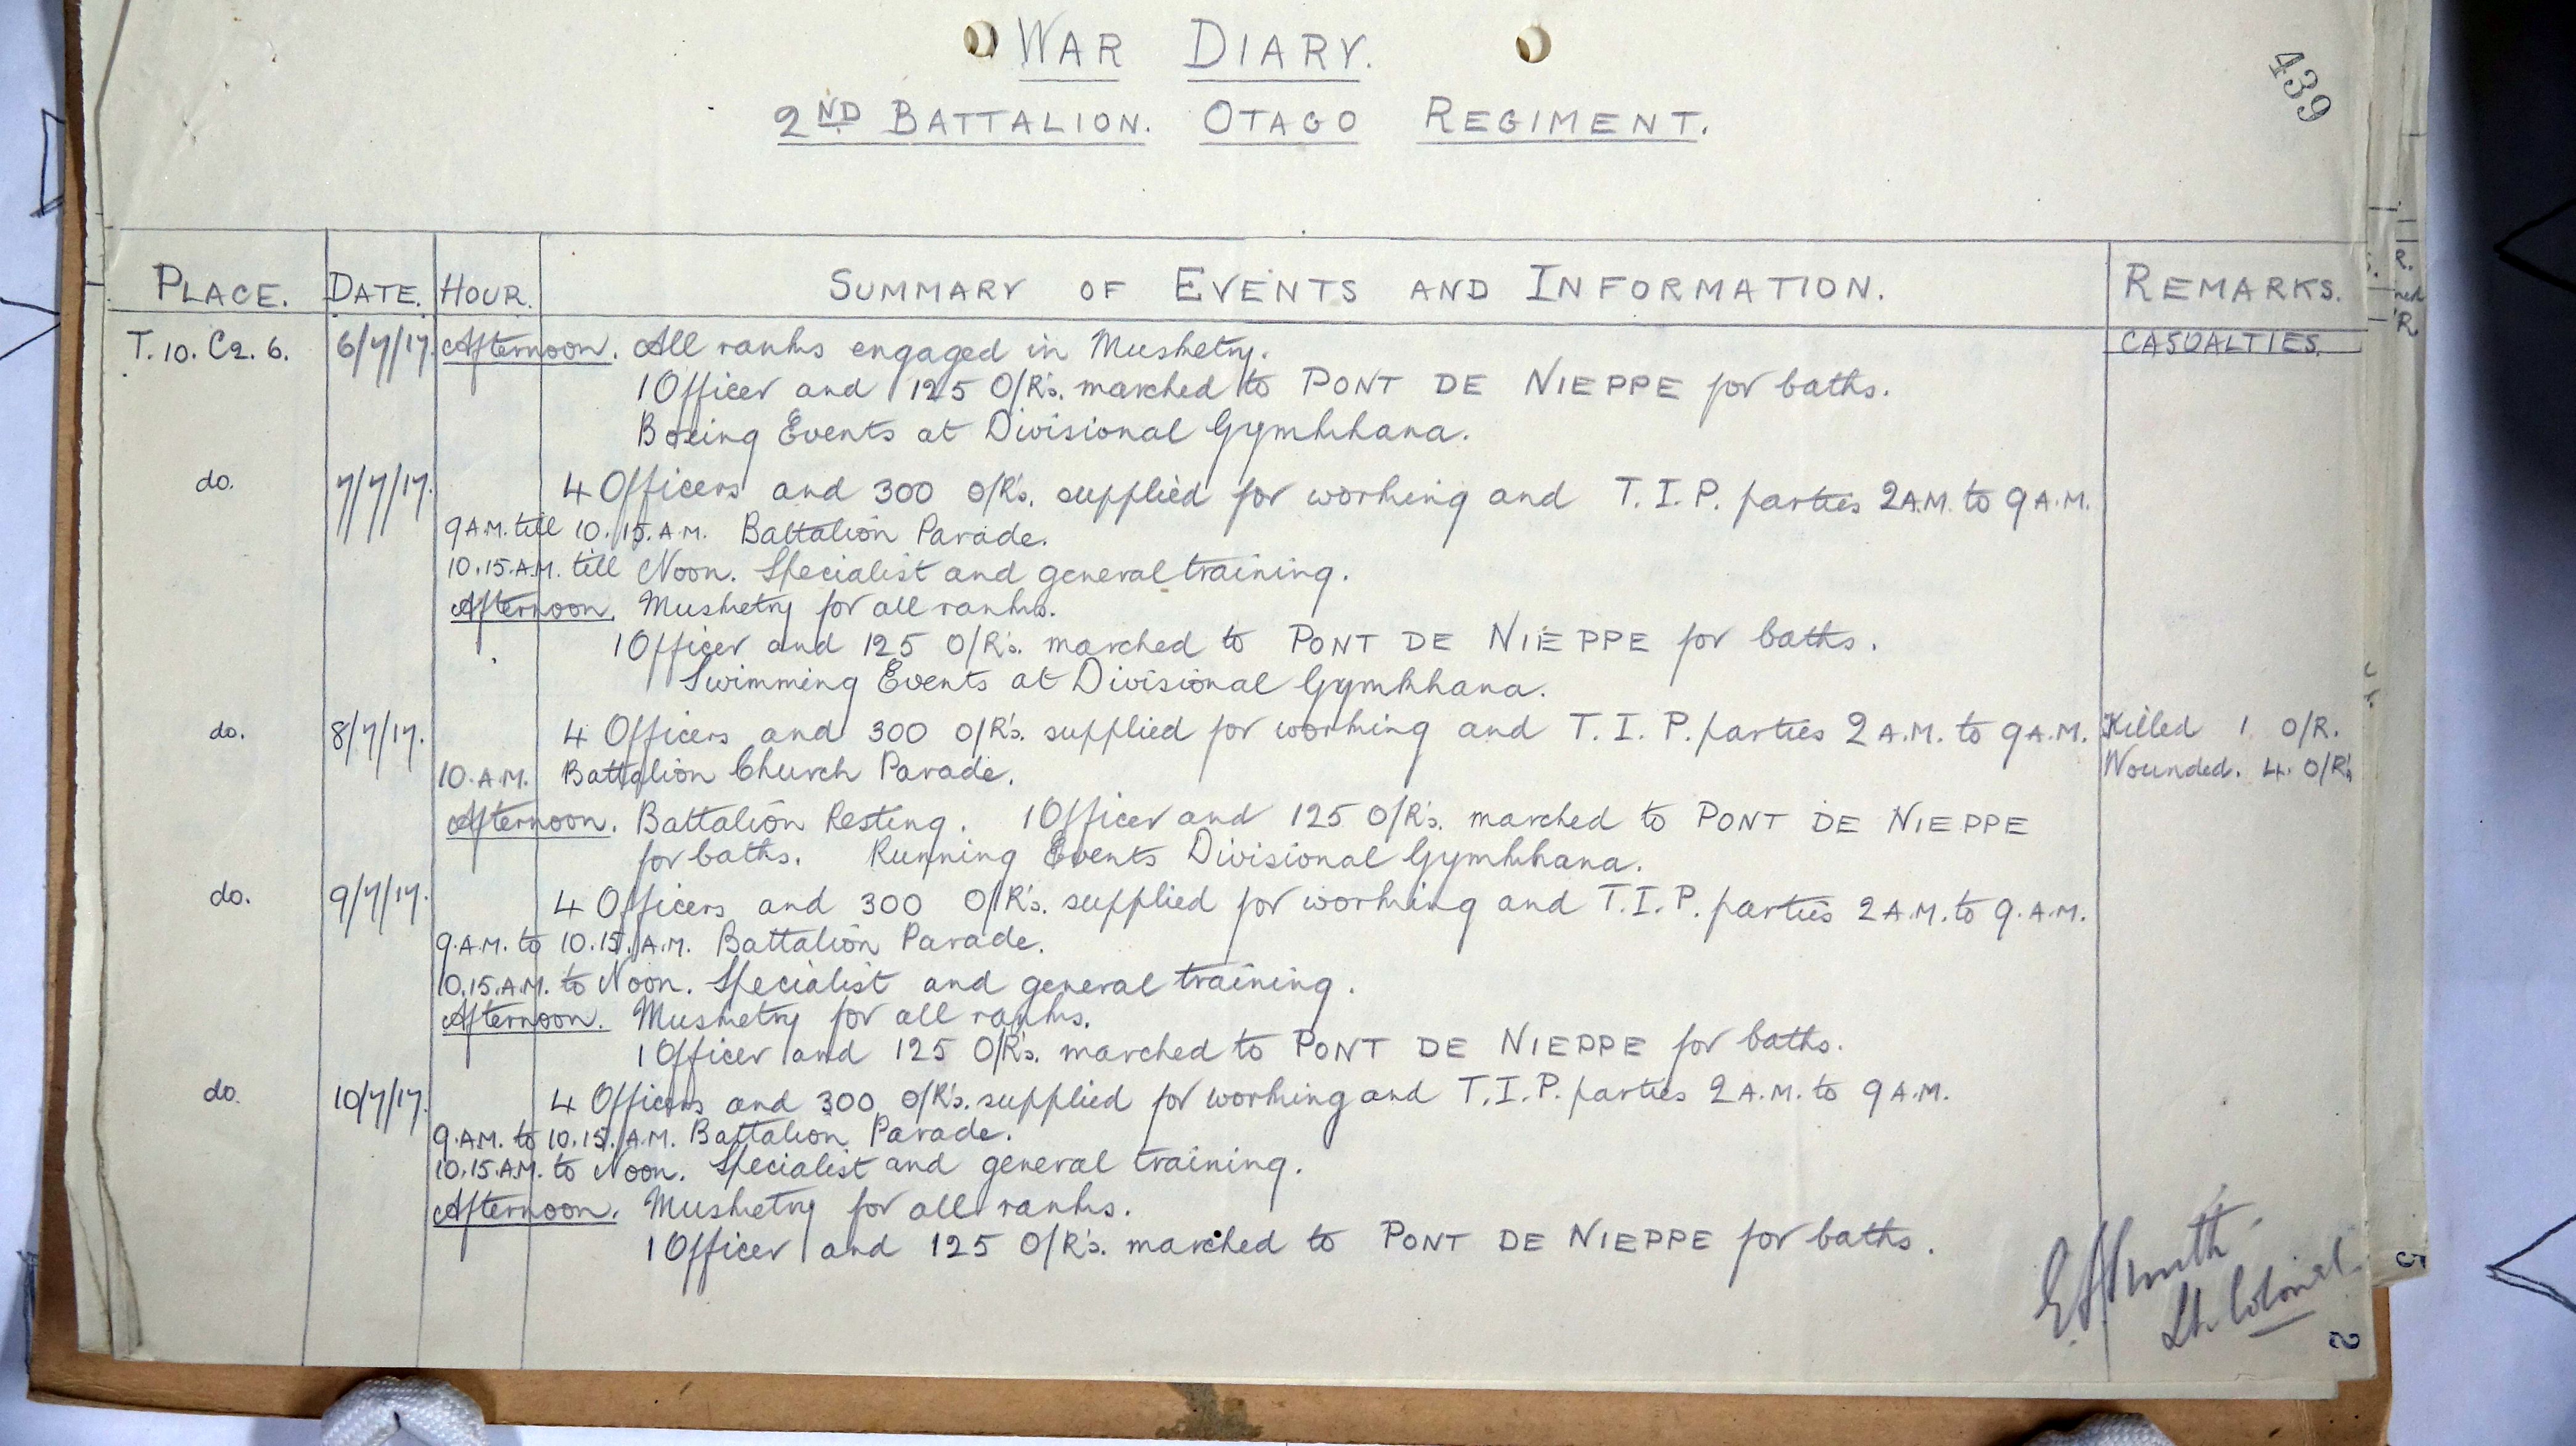 WAR DIARY.
439
2ND BATTALION. OTAGO REGIMENT.
PLACE. DATE. HOUR. SUMMARY OF EVENTS AND INFORMATION. REMARKS.
T.10. C2. 6. 6/7/17. Afternoon. All ranks engaged in Musketry. CASUALTIES.
1 Officer and 125 O/R's. marched to PONT DE NIEPPE for baths.
Boxing Events at Divisional Gymkhana.
do. 7/7/17. 4 Officers and 300 O/R's. supplied for working and T.I.P. parties 2 A.M. to 9 A.M.
9 A.M. till 10.15. A.M. Battalion Parade.
10.15. A.M. till Noon. Specialist and general training.
Afternoon. Musketry for all ranks.
1 Officer and 125 O/R's. marched to PONT DE NIEPPE for baths.
Swimming Events at Divisional Gymkhana.
do. 8/7/17. 4 Officers and 300 O/R's. supplied for working and T.I.P. parties 2 A.M. to 9 A.M. Killed 1 O/R.
10. A.M. Battalion Church Parade. Wounded. 4. O/R's
Afternoon. Battalion Resting. 1 Officer and 125 O/R's. marched to PONT DE NIEPPE
for baths. Running Events Divisional Gymkhana.
do. 9/7/17. 4 Officers and 300 O/R's. supplied for working and T.I.P. parties 2 A.M. to 9. A.M.
9. A.M. to 10.15. A.M. Battalion Parade.
10.15. A.M. to Noon. Specialist and general training.
Afternoon. Musketry for all ranks.
1 Officer and 125 O/R's. marched to PONT DE NIEPPE for baths.
do. 10/7/17. 4 Officers and 300 O/R's. supplied for working and T.I.P. parties 2 A.M. to 9 A.M.
9. A.M. to 10.15. A.M. Battalion Parade.
10.15. A.M. to Noon. Specialist and general training.
Afternoon. Musketry for all ranks.
1 Officer and 125 O/R's. marched to PONT DE NIEPPE for baths.
Smith
Lt. Colonel.